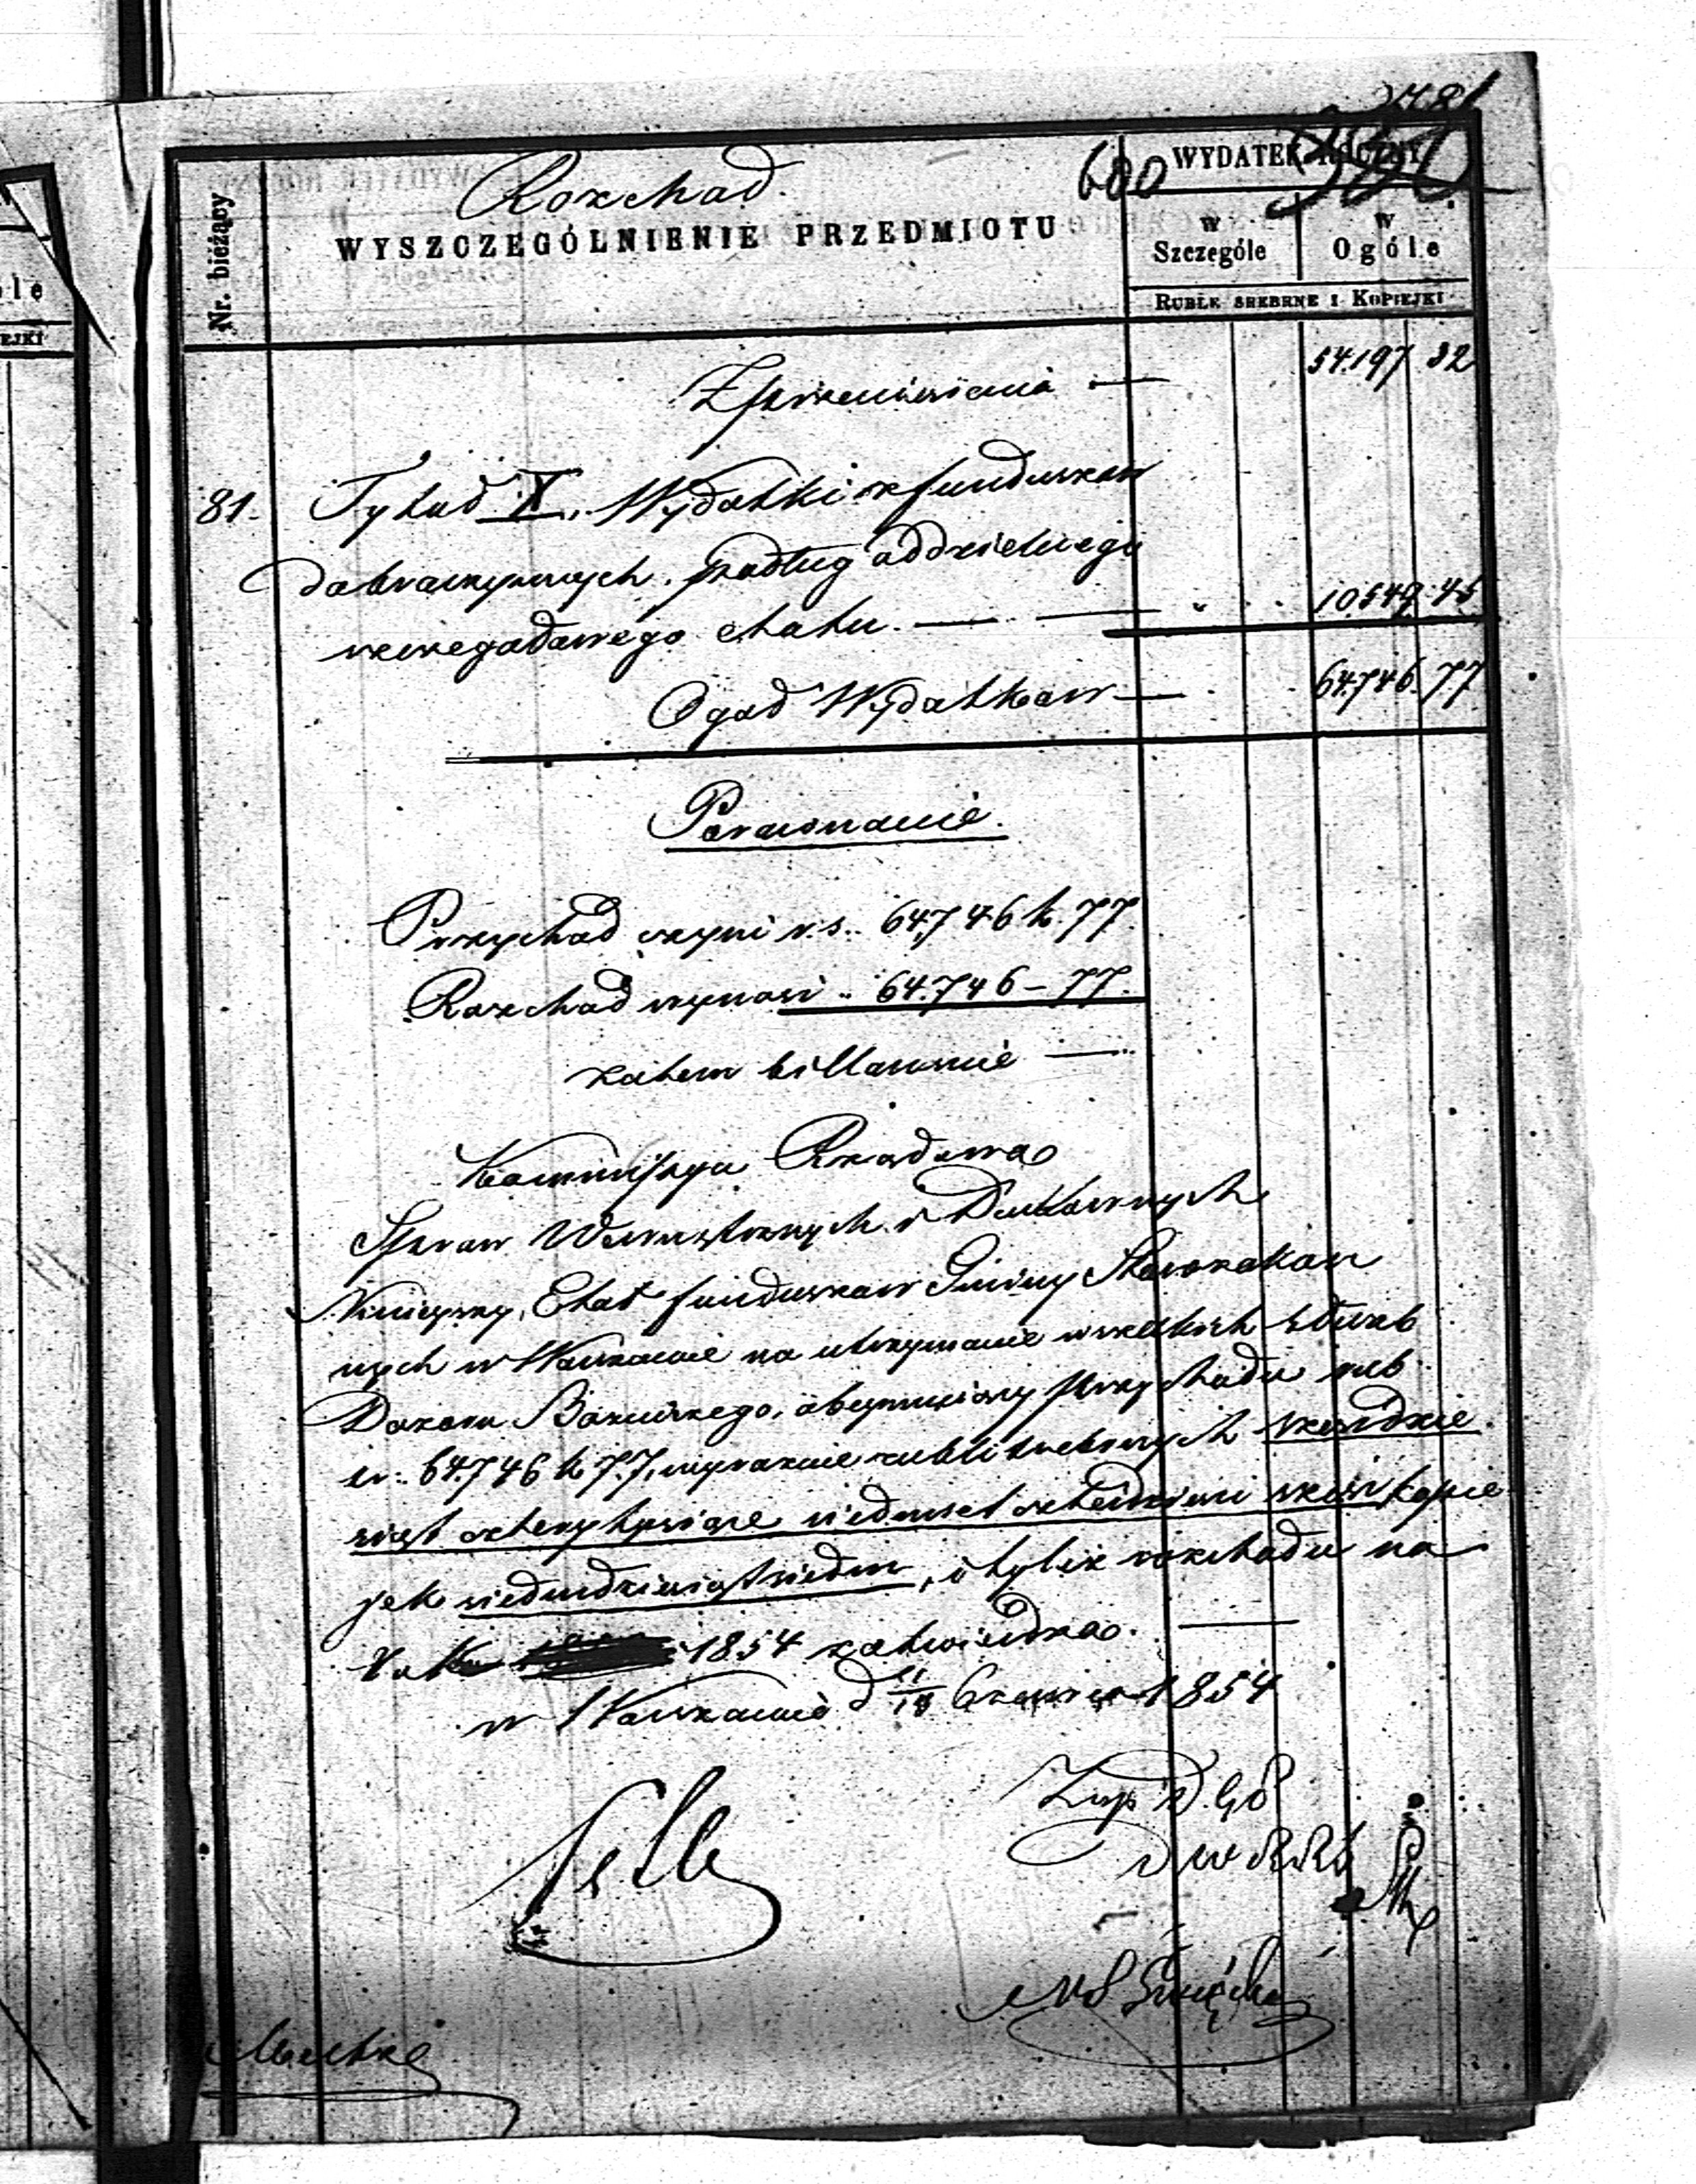 Rozchod.
600
WYDATEK ROCZNY
Nr. bieżący
WYSZCZEGÓLNIENIE PRZEDMIOTU
w Szczególe
w Ogóle
RUBLE SREBRNE I KOPIEJKI
Z przeniesienia — 54.197 32
81. Tytuł X. Wydatki z funduszów
dobroczynnych, podług oddzielnego
szczegółowego etatu. — 10.549 45
Ogół Wydatków — 64.746. 77
Porównanie.
Przychód czyni r. s. 64,746 k. 77.
Rozchód wynosi „ 64.746 – 77.
zatem billansuie —
Kommissya Rządowa
Spraw Wewnętrznych i Duchownych
Niniejszy Etat funduszów Gminy Starozakon
nych w Warszawie na utrzymanie wszelkich służb
Dozoru Bożniczego, obejmujący przychodu rub
sr: 64.746 k 77, wyraźnie rubli srebrnych sześćdzie
siąt cztery tysiące siedmset czterdzieści sześć kopie
jek siedmdziesiąt siedm, i tyleż rozchodu na
rok 1854 zatwierdza. —
w Warszawie d 11/ Czerwca 1854